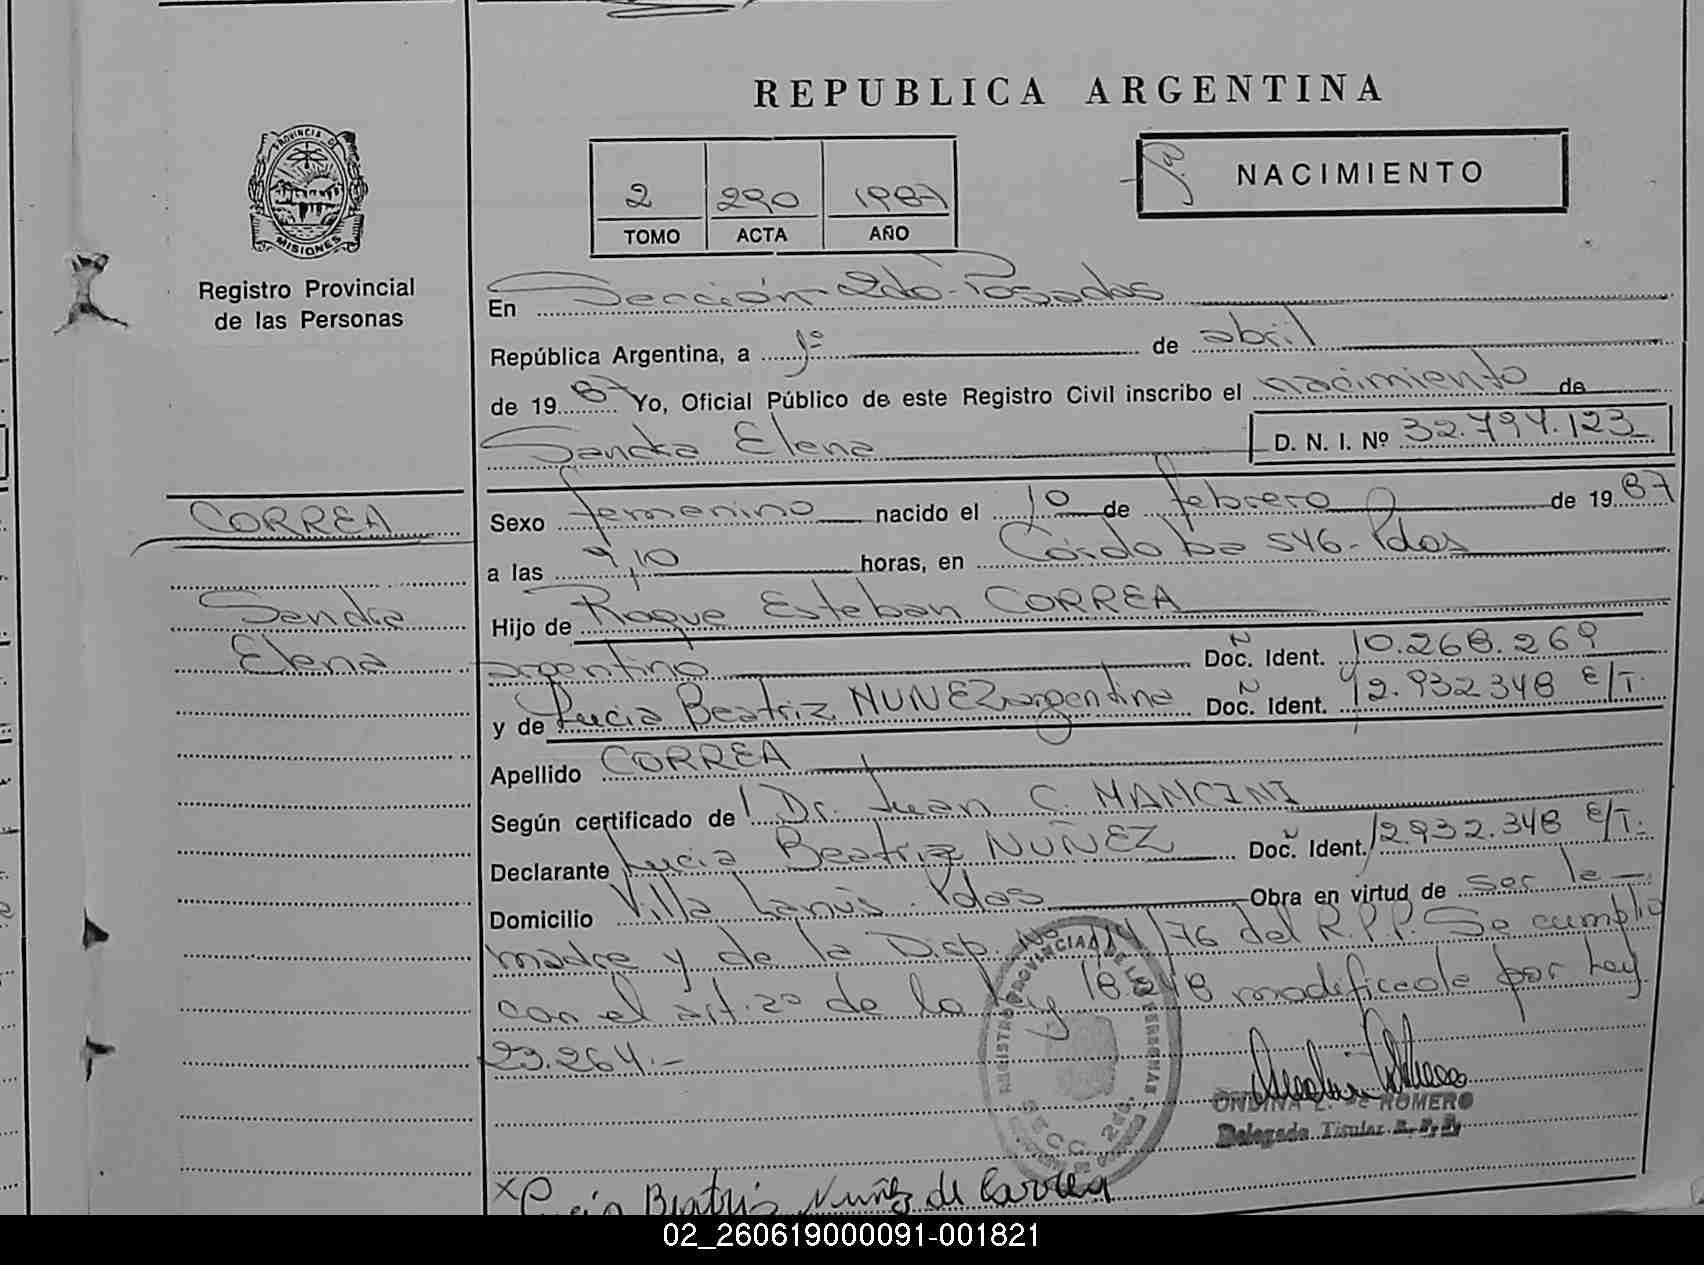 REPUBLICA ARGENTINA
PROVINCIA DE MISIONES
Registro Provincial
de las Personas
2 290 1987
TOMO ACTA AÑO
NACIMIENTO
En Sección 2do. Posadas
República Argentina, a 1º de abril
de 19 87 Yo, Oficial Público de este Registro Civil inscribo el nacimiento de
Sandra Elena D. N. I. Nº 32.794.123
CORREA
Sandra
Elena
Sexo femenino nacido el 10 de febrero de 19 87
a las 9,10 horas, en Córdoba 546-Pdas
Hijo de Roque Esteban CORREA
argentino Doc. Ident. Nº 10.268.269
y de Lucia Beatriz NUÑEZ argentina Doc. Ident. Nº 12.932.348 E/T.
Apellido CORREA
Según certificado de Dr. Juan C. MANCINI
Declarante Lucia Beatriz NUÑEZ Doc. Ident. 12.932.348 E/T.
Domicilio Villa Lanús. Pdas Obra en virtud de ser la
madre y de la Disp. Nº /76 del R.P.P. Se cumplió
con el art. 2º de la Ley 18.248 modificada por Ley
23.264.-
REGISTRO PROVINCIAL DE LAS PERSONAS
SECC. 2da.
ONDINA E. de ROMERO
Delegada Titular R. P. P.
x Lucia Beatriz Nuñez de Correa
02_260619000091-001821